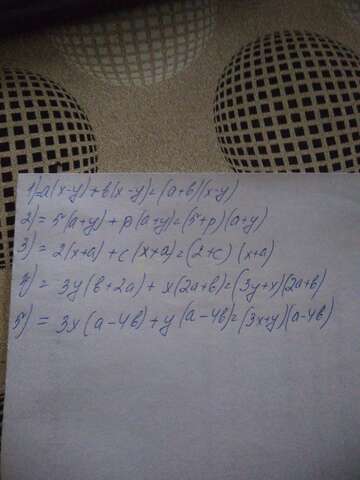 1) a(x-y)+b(x-y)=(a+b)(x-y)
2) = 5(a+y)+p(a+y)=(5+p)(a+y)
3) = 2(x+a)+c(x+a)=(2+c)(x+a)
4) = 3y(b+2a)+x(2a+b)=(3y+x)(2a+b)
5) = 3x(a-4b)+y(a-4b)=(3x+y)(a-4b)